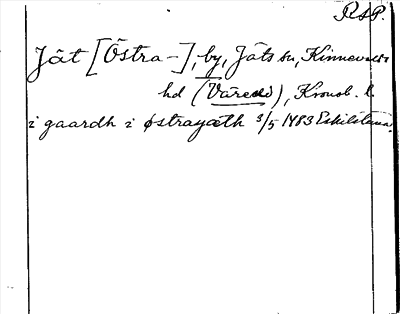 RAP.
Jät [Östra -], by, Jäts sn, Kinnevalds
hd (Värend), Kronob. l.
i gaardh i østrayæth 3/5 1483 Eskilstuna.